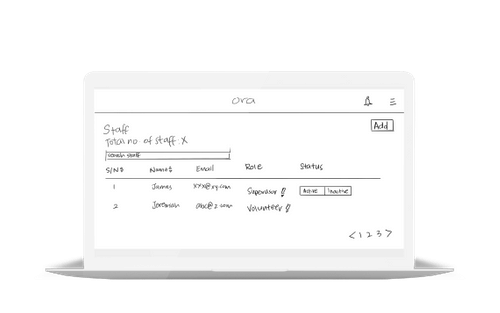 ora
Add
Staff
Total no. of staff: X
search staff
S/N Name Email Role Status
1 James xyx@xy.com Supervisor Active Inactive
2 abc@z.com Volunteer
< 1 2 3 >